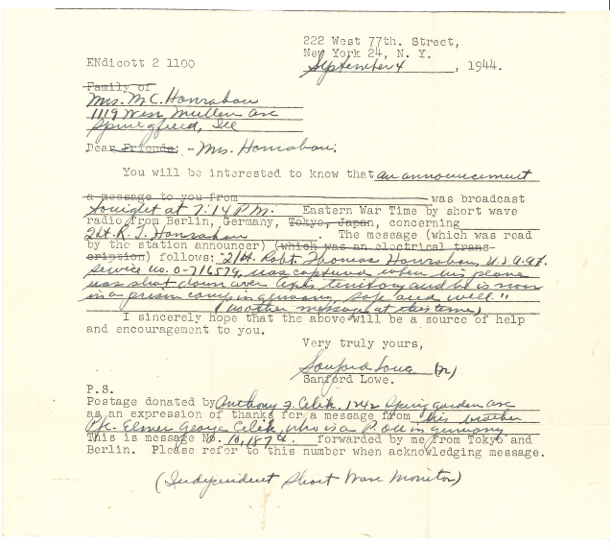 222 West 77th. Street,
New York 24, N. Y.
ENdicott 2 1100 September 4, 1944.
Family of
Mrs. M C. Honrahan
1119 West Mullen Ave
Springfield, Ill
Dear Friends: - Mrs. Honrahan:
You will be interested to know that an announcement
a message to you from was broadcast
tonight at 7:14 P.M. Eastern War Time by short wave
radio from Berlin, Germany, Tokyo, Japan, concerning
2Lt. R. T. Honrahan. The message (which was read
by the station announcer) (which was an electrical trans-
cription) follows: "2Lt. Robt. Thomas Honrahan, U S A A F.
service no. O-716579, was captured when his plane
was shot down over Axis territory and he is now
in a prison camp in Germany safe and well."
(no other message at this time)
I sincerely hope that the above will be a source of help
and encouragement to you.
Very truly yours,
Sanford Lowe
Sanford Lowe.
P.S.
Postage donated by Anthony J. Celik, Spring Garden Ave
as an expression of thanks for a message from his brother
Pfc. Elmer George Celik, who is a P. o W in Germany
This is message No. 10,187 forwarded by me from Tokyo and
Berlin. Please refer to this number when acknowledging message.
(Independent Short Wave Monitor)